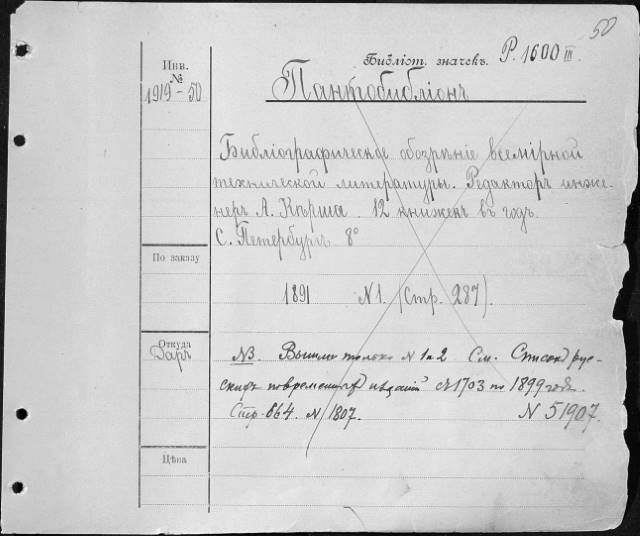 50
Библіот. значекъ. P. 1600 III
Инв.
№
1919 - 50
Пантобибліонъ
Библіографическое обозрѣніе всемірной
технической литературы. Редакторъ инже-
неръ А. Кѣрша. 12 книжекъ въ годъ.
С. Петербургъ 8°
По заказу
1891 N1. (Стр. 287).
Откуда
Даръ
NB. Вышли только N 1 и 2 См. Список рус-
скихъ повременныхъ изданій съ 1703 по 1899 годъ.
Стр. 664. N 1807. N 51907.
Цѣна